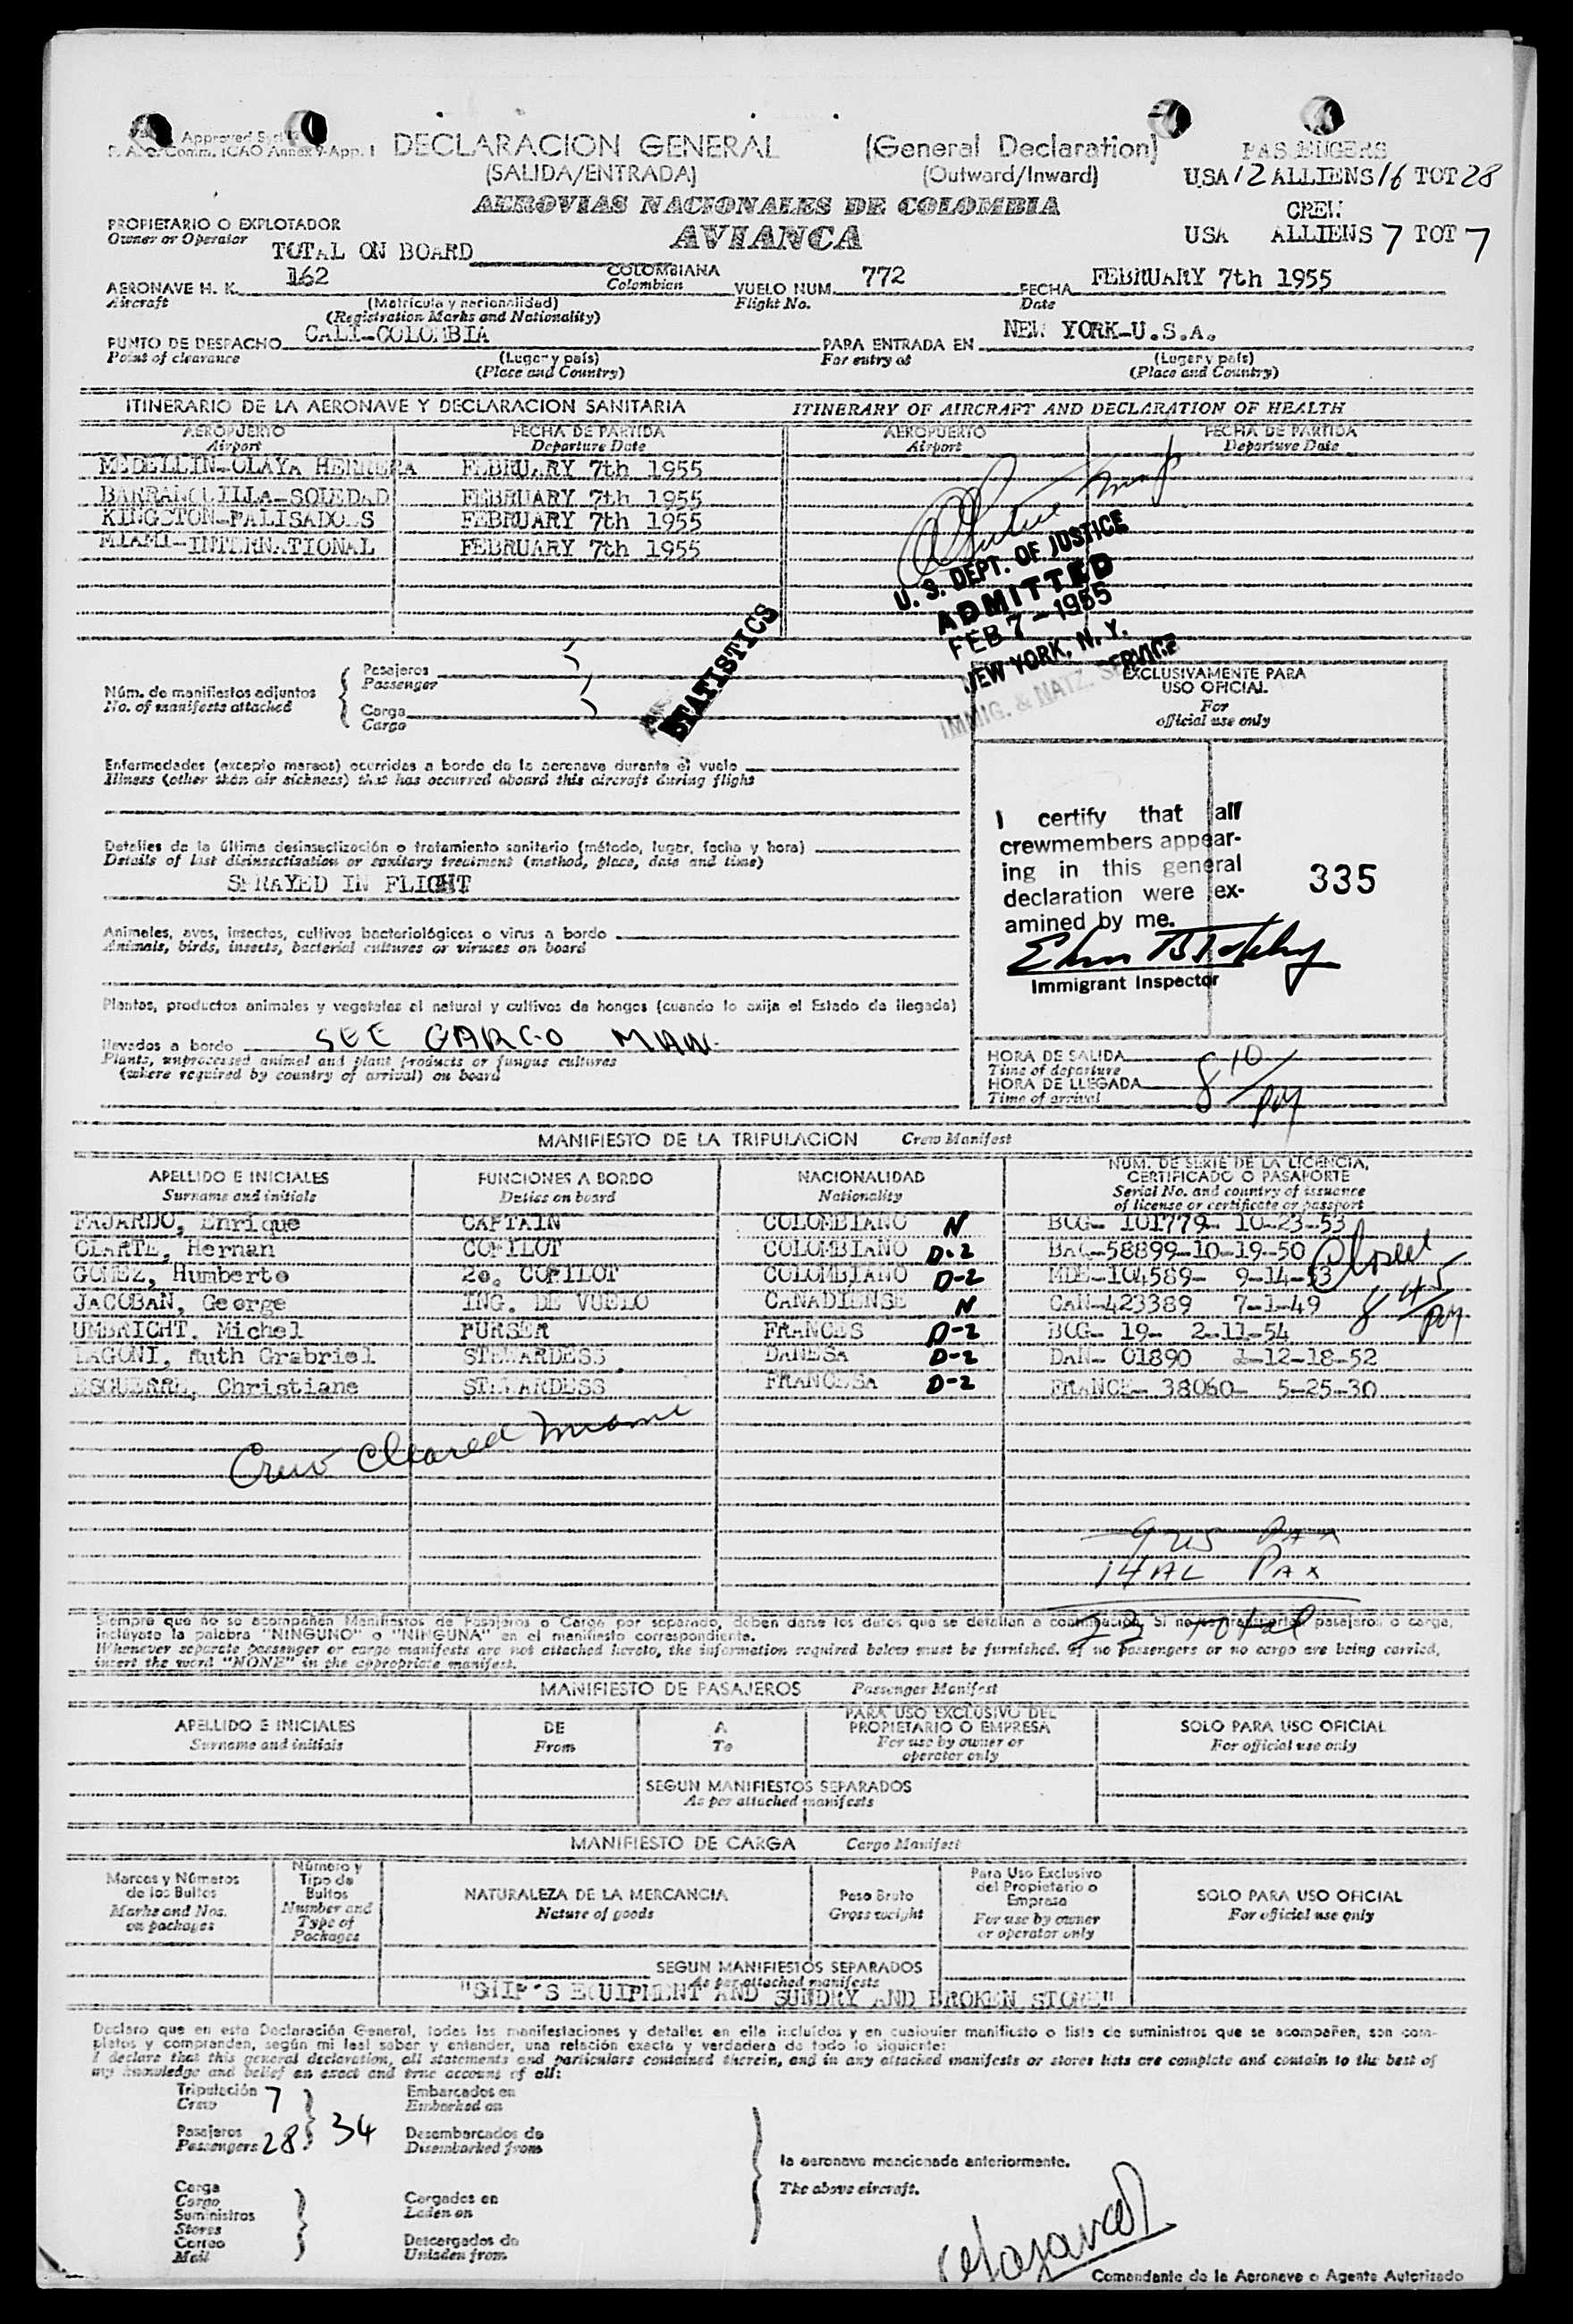 Approved
Comm. ICAO Annex 9-App. 1
DECLARACION GENERAL (General Declaration)
(SALIDA/ENTRADA) (Outward/Inward)
PASSENGERS
USA 12 ALLIENS 16 TOT 28
AEROVIAS NACIONALES DE COLOMBIA
AVIANCA
CREW
USA ALLIENS 7 TOT 7
PROPIETARIO O EXPLOTADOR
Owner or Operator
TOTAL ON BOARD
AERONAVE H. K. 162 COLOMBIANA VUELO NUM. 772 FECHA FEBRUARY 7th 1955
Aircraft (Matrícula y nacionalidad) Colombian Flight No. Date
(Registration Marks and Nationality)
PUNTO DE DESPACHO CALI-COLOMBIA PARA ENTRADA EN NEW YORK-U.S.A.
Point of clearance (Lugar y país) For entry at (Lugar y país)
(Place and Country) (Place and Country)
ITINERARIO DE LA AERONAVE Y DECLARACION SANITARIA ITINERARY OF AIRCRAFT AND DECLARATION OF HEALTH
AEROPUERTO FECHA DE PARTIDA AEROPUERTO FECHA DE PARTIDA
Airport Departure Date Airport Departure Date
MEDELLIN-OLAYA HERRERA FEBRUARY 7th 1955
BARRANQUILLA-SOLEDAD FEBRUARY 7th 1955
KINGSTON-PALISADOES FEBRUARY 7th 1955
MIAMI-INTERNATIONAL FEBRUARY 7th 1955
U. S. DEPT. OF JUSTICE
ADMITTED
FEB 7 - 1955
NEW YORK, N. Y.
IMMIG. & NATZ. SERVICE
STATISTICS
Núm. de manifiestos adjuntos
No. of manifests attached
Pasajeros
Passenger
Carga
Cargo
EXCLUSIVAMENTE PARA
USO OFICIAL
For
official use only
Enfermedades (excepto mareos) ocurridas a bordo de la aeronave durante el vuelo
Illness (other than air sickness) that has occurred aboard this aircraft during flight
Detalles de la última desinsectización o tratamiento sanitario (método, lugar, fecha y hora)
Details of last disinsectisation or sanitary treatment (method, place, date and time)
SPRAYED IN FLIGHT
Animales, aves, insectos, cultivos bacteriológicos o virus a bordo
Animals, birds, insects, bacterial cultures or viruses on board
Plantas, productos animales y vegetales al natural y cultivos de hongos (cuando lo exija el Estado de llegada)
llevados a bordo SEE CARGO MAN.
Plants, unprocessed animal and plant products or fungus cultures
(where required by country of arrival) on board
I certify that all
crewmembers appear-
ing in this general
declaration were ex-
amined by me.
335
Immigrant Inspector
HORA DE SALIDA
Time of departure
HORA DE LLEGADA
Time of arrival
8 10/PM
MANIFIESTO DE LA TRIPULACION Crew Manifest
APELLIDO E INICIALES FUNCIONES A BORDO NACIONALIDAD NUM. DE SERIE DE LA LICENCIA, CERTIFICADO O PASAPORTE
Surname and initials Duties on board Nationality Serial No. and country of issuance of license or certificate or passport
FAJARDO, Enrique CAPTAIN COLOMBIANO N BOG- 101779- 10-23-53
OLARTE, Hernan COPILOT COLOMBIANO D-2 -58899-10-19-50
GOMEZ, Humberto 2o. COPILOT COLOMBIANO D-2 MDE-104589- 9-14-53
JACOBAN, George ING. DE VUELO CANADIENSE N CAN-423389 7-1-49
UMBRICHT, Michel PURSER FRANCES D-2 BOG- 19- 2-11-54
LAGONI, Ruth Grabriel STEWARDESS DANESA D-2 DAN- 01890 1-12-18-52
ESGUERRE, Christiane STEWARDESS FRANCESA D-2 FRANCE- 38060- 5-25-30
Closed
8 45/PM
Crew Cleared Miami
9 US PAX
14 AL PAX
23 total
Siempre que no se acompañen Manifiestos de Pasajeros o Carga por separado, deben darse los datos que se detallan a continuación. Si no pasajeros o carga,
inclúyase la palabra "NINGUNO" o "NINGUNA" en el manifiesto correspondiente.
Whenever separate passenger or cargo manifests are not attached hereto, the information required below must be furnished. If no passengers or no cargo are being carried,
insert the word "NONE" in the appropriate manifest.
MANIFIESTO DE PASAJEROS Passenger Manifest
APELLIDO E INICIALES DE A PARA USO EXCLUSIVO DEL PROPIETARIO O EMPRESA SOLO PARA USO OFICIAL
Surname and initials From To For use by owner or operator only For official use only
SEGUN MANIFIESTOS SEPARADOS
As per attached manifests
MANIFIESTO DE CARGA Cargo Manifest
Marcas y Números de los Bultos Número y Tipo de Bultos NATURALEZA DE LA MERCANCIA Peso Bruto Para Uso Exclusivo del Propietario o Empresa SOLO PARA USO OFICIAL
Marks and Nos. on packages Number and Type of Packages Nature of goods Gross weight For use by owner or operator only For official use only
SEGUN MANIFIESTOS SEPARADOS
As per attached manifests
"SHIP'S EQUIPMENT AND SUNDRY AND BROKEN STORE"
Declaro que en esta Declaración General, todas las manifestaciones y detalles en ella incluídos y en cualquier manifiesto o lista de suministros que se acompañen, son com-
pletos y comprenden, según mi leal saber y entender, una relación exacta y verdadera de todo lo siguiente:
I declare that this general declaration, all statements and particulars contained therein, and in any attached manifests or stores lists are complete and contain to the best of
my knowledge and belief an exact and true account of all:
Tripulación 7 Embarcados en
Crew Embarked on
Pasajeros 28 34 Desembarcados de
Passengers Disembarked from
la aeronave mencionada anteriormente.
The above aircraft.
Carga
Cargo
Suministros
Stores
Correo
Mail
Cargados en
Laden on
Descargados de
Unladen from
Comandante de la Aeronave o Agente Autorizado